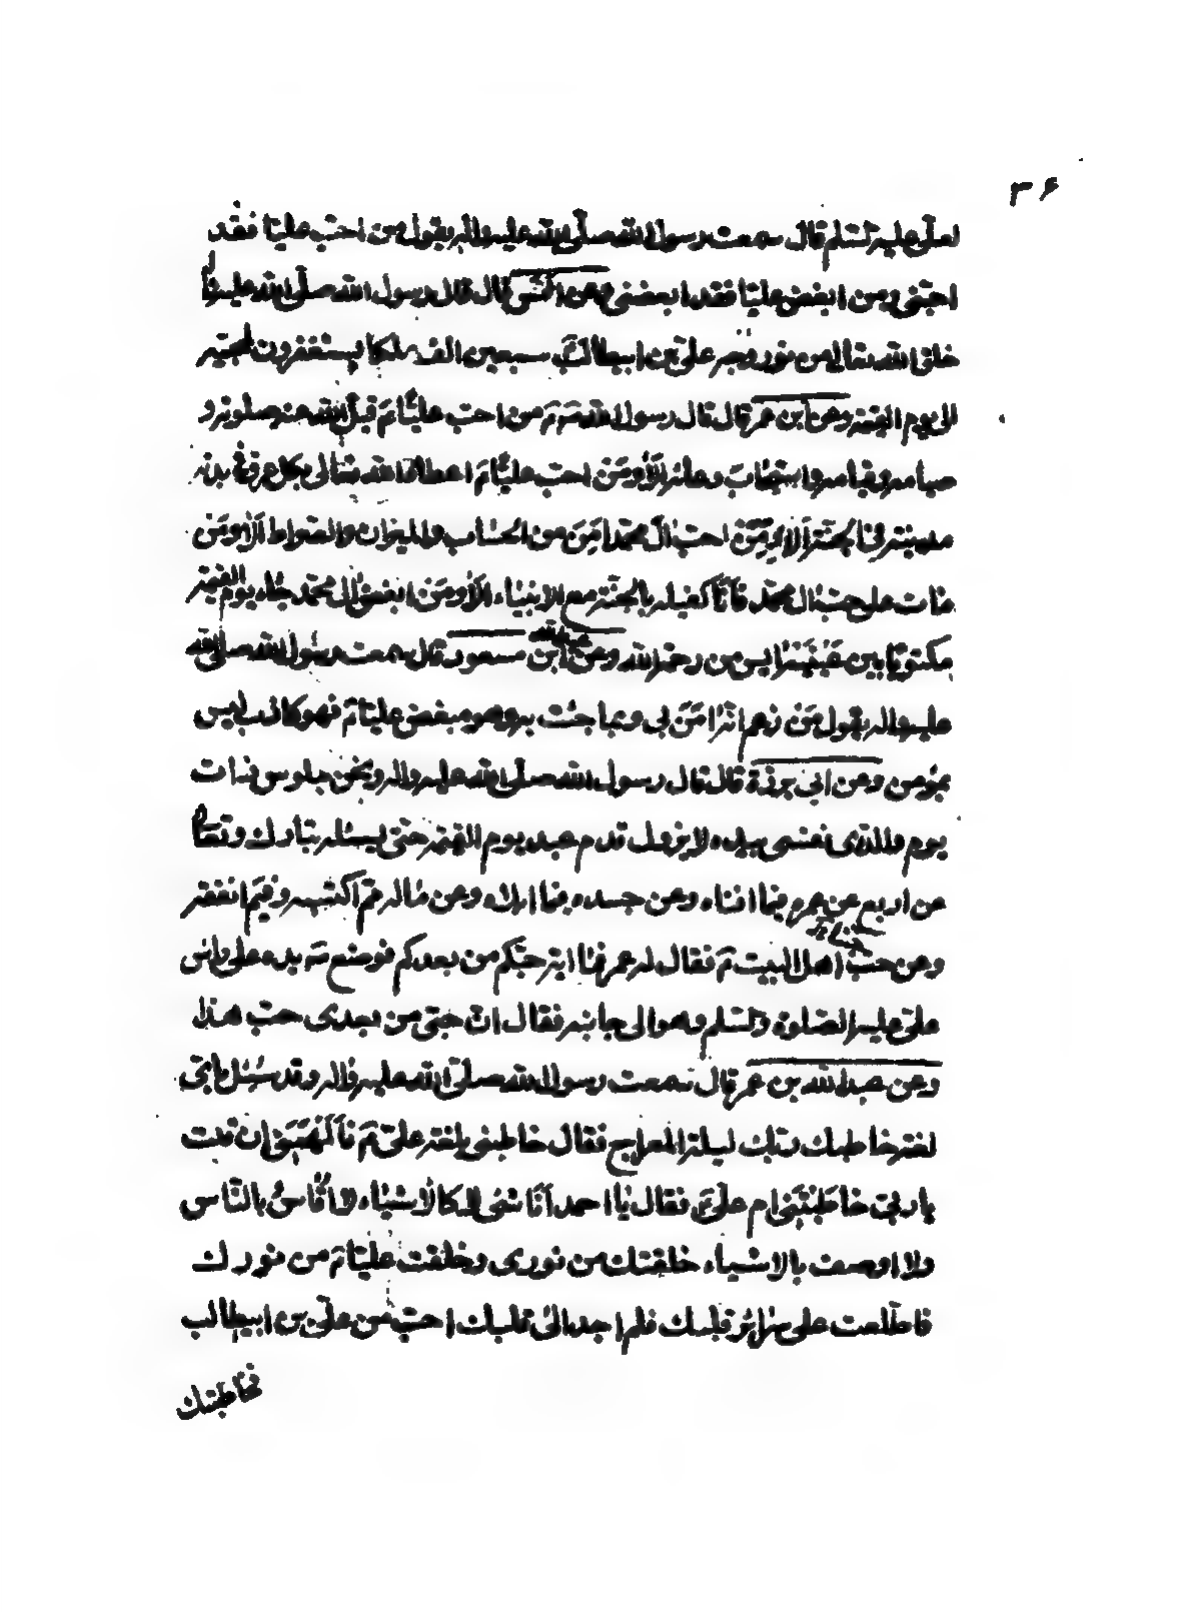 ۳۶
لعلی علیه السلم قال سمعت رسول الله صلی الله علیه واله یقول من احب علیا فقد
احبنی ومن ابغض علیا فقد ابغضنی وعن انس قال قال رسول الله صلی الله علیه واله
خلق الله تعالی من نور وجه علی بن ابیطالب سبعین الف ملکا یستغفرون لمحبیه
الی یوم القیمة وعن ابن عمر قال قال رسول الله من احب علیا قبل الله عنه صلوته و
صیامه وقیامه واستجاب دعائه الا ومن احب علیا اعطاه الله تعالی بکل عرق فی بدنه
مدینة فی الجنة الا ومن احب ال محمد امن من الحساب والمیزان والصراط الا ومن
مات علی حب ال محمد فانا کفیله بالجنة مع الانبیاء الا ومن ابغض ال محمد جاء یوم القیمة
مکتوبا بین عینیه ایس من رحمة الله وعن عبدالله ابن مسعود قال سمعت رسول الله صلی الله
علیه واله یقول من زعم انه امن بی وبما جئت به وهو مبغض علیا فهو کاذب لیس
بمؤمن وعن ابی برزة قال قال رسول الله صلی الله علیه واله ونحن جلوس ذات
یوم والذی نفسی بیده لا یزول قدم عبد یوم القیمة حتی یسئله تبارک وتعالی
عن اربع عن عمره فیما افناه وعن جسده فیما ابلاه وعن ماله مم اکتسبه وفیم انفقه
وعن حبنا اهل البیت فقال له عمر فما ایة حبکم من بعدکم فوضع یده علی راس
علی علیه الصلوة والسلم وهو الی جانبه فقال ان حبی من بعدی حب هذا
وعن عبدالله بن عمر قال سمعت رسول الله صلی الله علیه واله وقد سئل بای
لغة خاطبک ربک لیلة المعراج فقال خاطبنی بلغة علی فالهمنی ان قلت
یا رب خاطبتنی ام علی فقال یا احمد انا شئ لا کالاشیاء لا اقاس بالناس
ولا اوصف بالاشیاء خلقتک من نوری وخلقت علیا من نورک
فاطلعت علی سرائر قلبک فلم اجد الی قلبک احب من علی بن ابیطالب
فخاطبتک